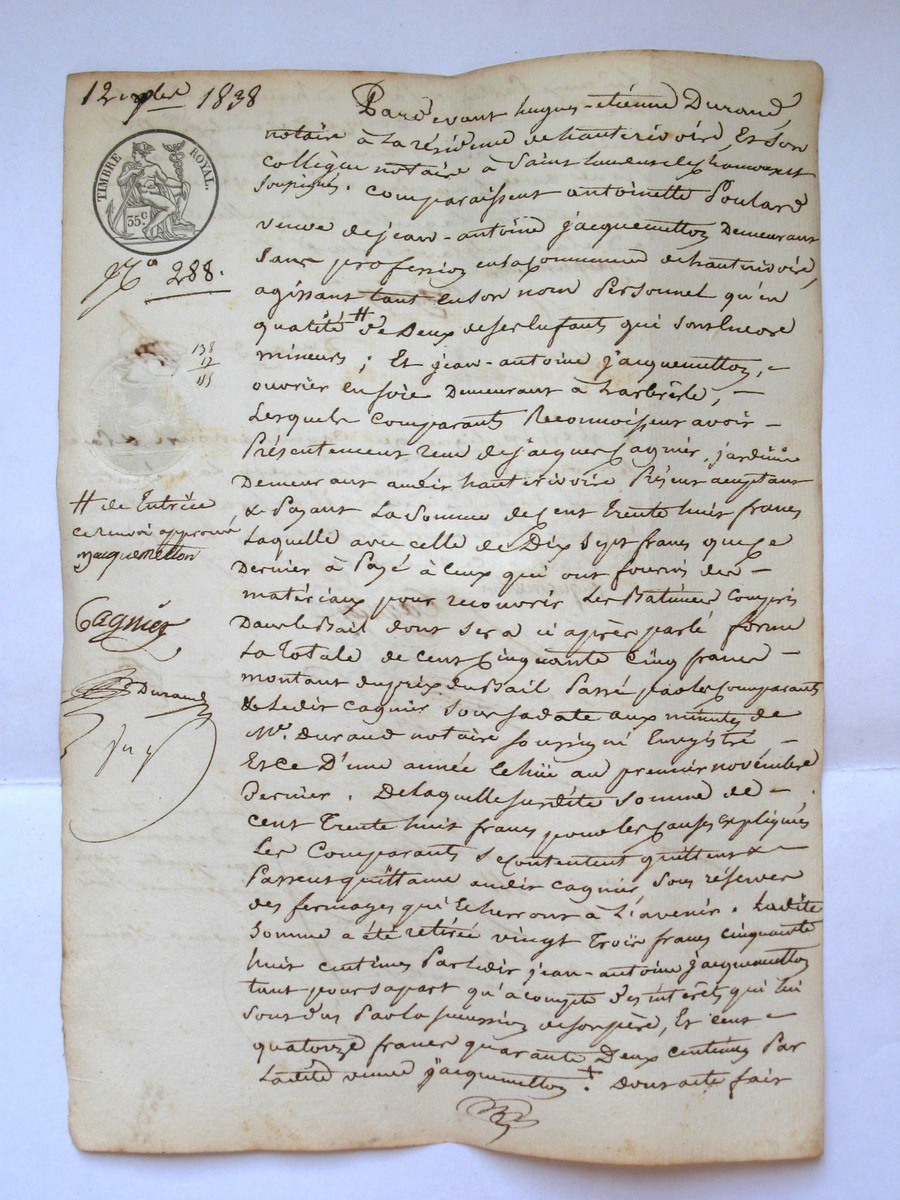 12 xbre 1838
TIMBRE ROYAL.
35c.
No 288.
138
17
155
Pardevant hugues-etienne Durand,
notaire à la résidence de hauterivoire, Et son
collègue notaire à Saint Laurent de chamousset
soussignés. comparaissent antoinette Poulard
veuve de jean-antoine jacquemetton Demeurant
sans profession en la commune de hauterivoire,
agissant tant en son nom Personnel qu'en
qualité # de Deux de ses Enfants qui sont Encore
mineurs; Et jean-antoine jacquemetton,
ouvrier en soie Demeurant à Larbresle,
Lesquels comparants Reconnoissent avoir
Présentement reçu de jacques Cagnier, jardinier
Demeurant audit hauterivoire Présent acceptant
& Payant La Somme de cent Trente huit francs
Laquelle avec celle de Dix Sept francs que ce
Dernier à Payé à ceux qui ont fournis des
matériaux pour recouvrir Les Batiments Compris
Dans le Bail dont sera ci après parlé forme
La Totale de cent cinquante cinq francs
montant du prix du Bail Passé par les comparants
& Ledit Cagnier sous sa date aux minutes de
Me. Durand notaire soussigné Enregistré
Et ce D'une année Echüe au premier novembre
Dernier. De laquelle susdite Somme de
cent Trente huit francs pour les causes Expliquées
Les Comparants se contentent quittent &
Passent quittance audit Cagnier sous réserves
des fermages qui Echerront à L'avenir. Ladite
Somme a été retirée vingt Trois francs cinquante
huit centimes Par Ledit jean-antoine jacquemetton
tant pour sa part qu'à compte des intérêts qui lui
sont dus Par la succession de son père, Et cent
quatorze francs quarante Deux centimes Par
Ladite veuve jacquemetton. + Dont acte fait
# de Tutrice
ce renvoi approuvé
jacquemetton
Cagnier
Durand